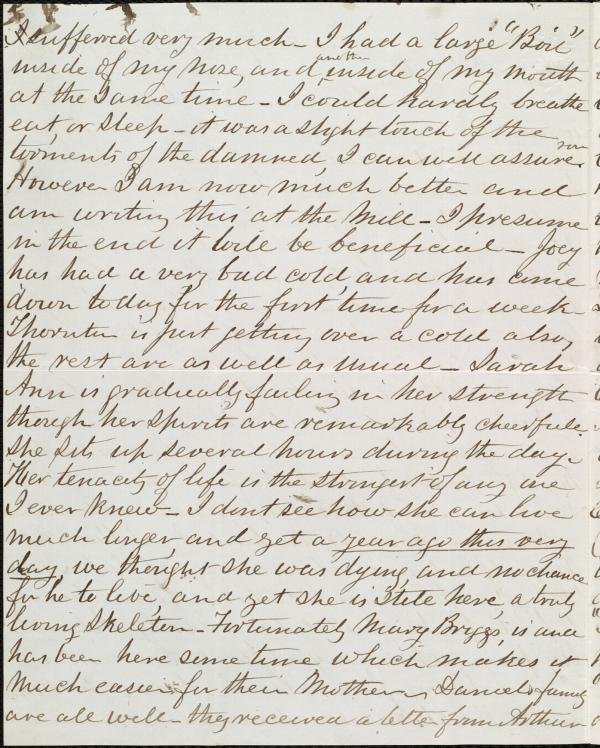 I sufferred very much - I had a large "Boil"
inside of my nose, and another inside of my mouth
at the same time - I could hardly breathe
eat, or sleep - it was a slight touch of the
torments of the damned, I can well assure you
However I am now much better and
am writing this at the Mill - I presume
in the end it will be beneficial - Joey
has had a very bad cold, and has come
down today for the first time for a week -
Thornton is just getting over a cold also,
the rest are as well as usual - Sarah
Ann is gradually failing in her strength
though her spirits are remarkably cheerful.
She sits up several hours during the day -
Her tenacity of life is the strongest of any one
I ever knew - I dont see how she can live
much longer, and yet a year ago this very
day, we thought she was dying, and no chance
for he to live, and yet she is still here, a truly
living Skeleton - Fortunately Mary Briggs, is and
has been here some time which makes it
much easier for their Mother, Daniels family
are all well - they received a letter from Arthur